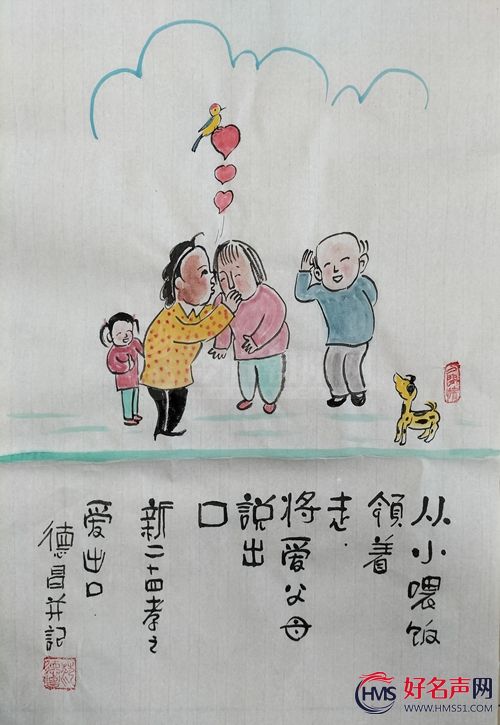 从小喂饭
领着
走.
将爱父母
説出
口
新二十四孝之
爱出口
德昌并記
HMS 好名声网
WWW.HMS51.COM